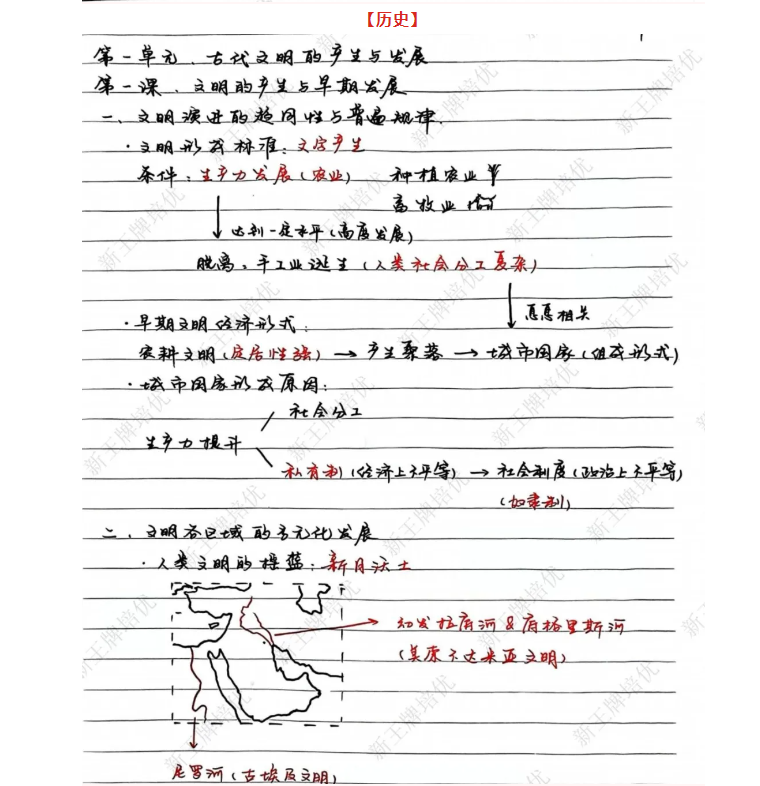 【历史】
1
第一单元、古代文明的产生与发展
第一课、文明的产生与早期发展
一、文明演进的趋同性与普遍规律.
·文明形成标准：文字产生
条件：生产力发展（农业） 种植农业
畜牧业
达到一定水平（高度发展）
脱离，手工业诞生（人类社会分工复杂）
息息相关
·早期文明经济形式：
农耕文明（定居性强）→产生聚落→城市国家（组成形式）
·城市国家形成原因：
社会分工
生产力提升
私有制（经济上不平等）→社会制度（政治上不平等）
（如隶制）
二、文明各区域的多元化发展
·人类文明的摇篮：新月沃土
幼发拉底河&底格里斯河
（美索不达米亚文明）
尼罗河（古埃及文明）
新王牌培优